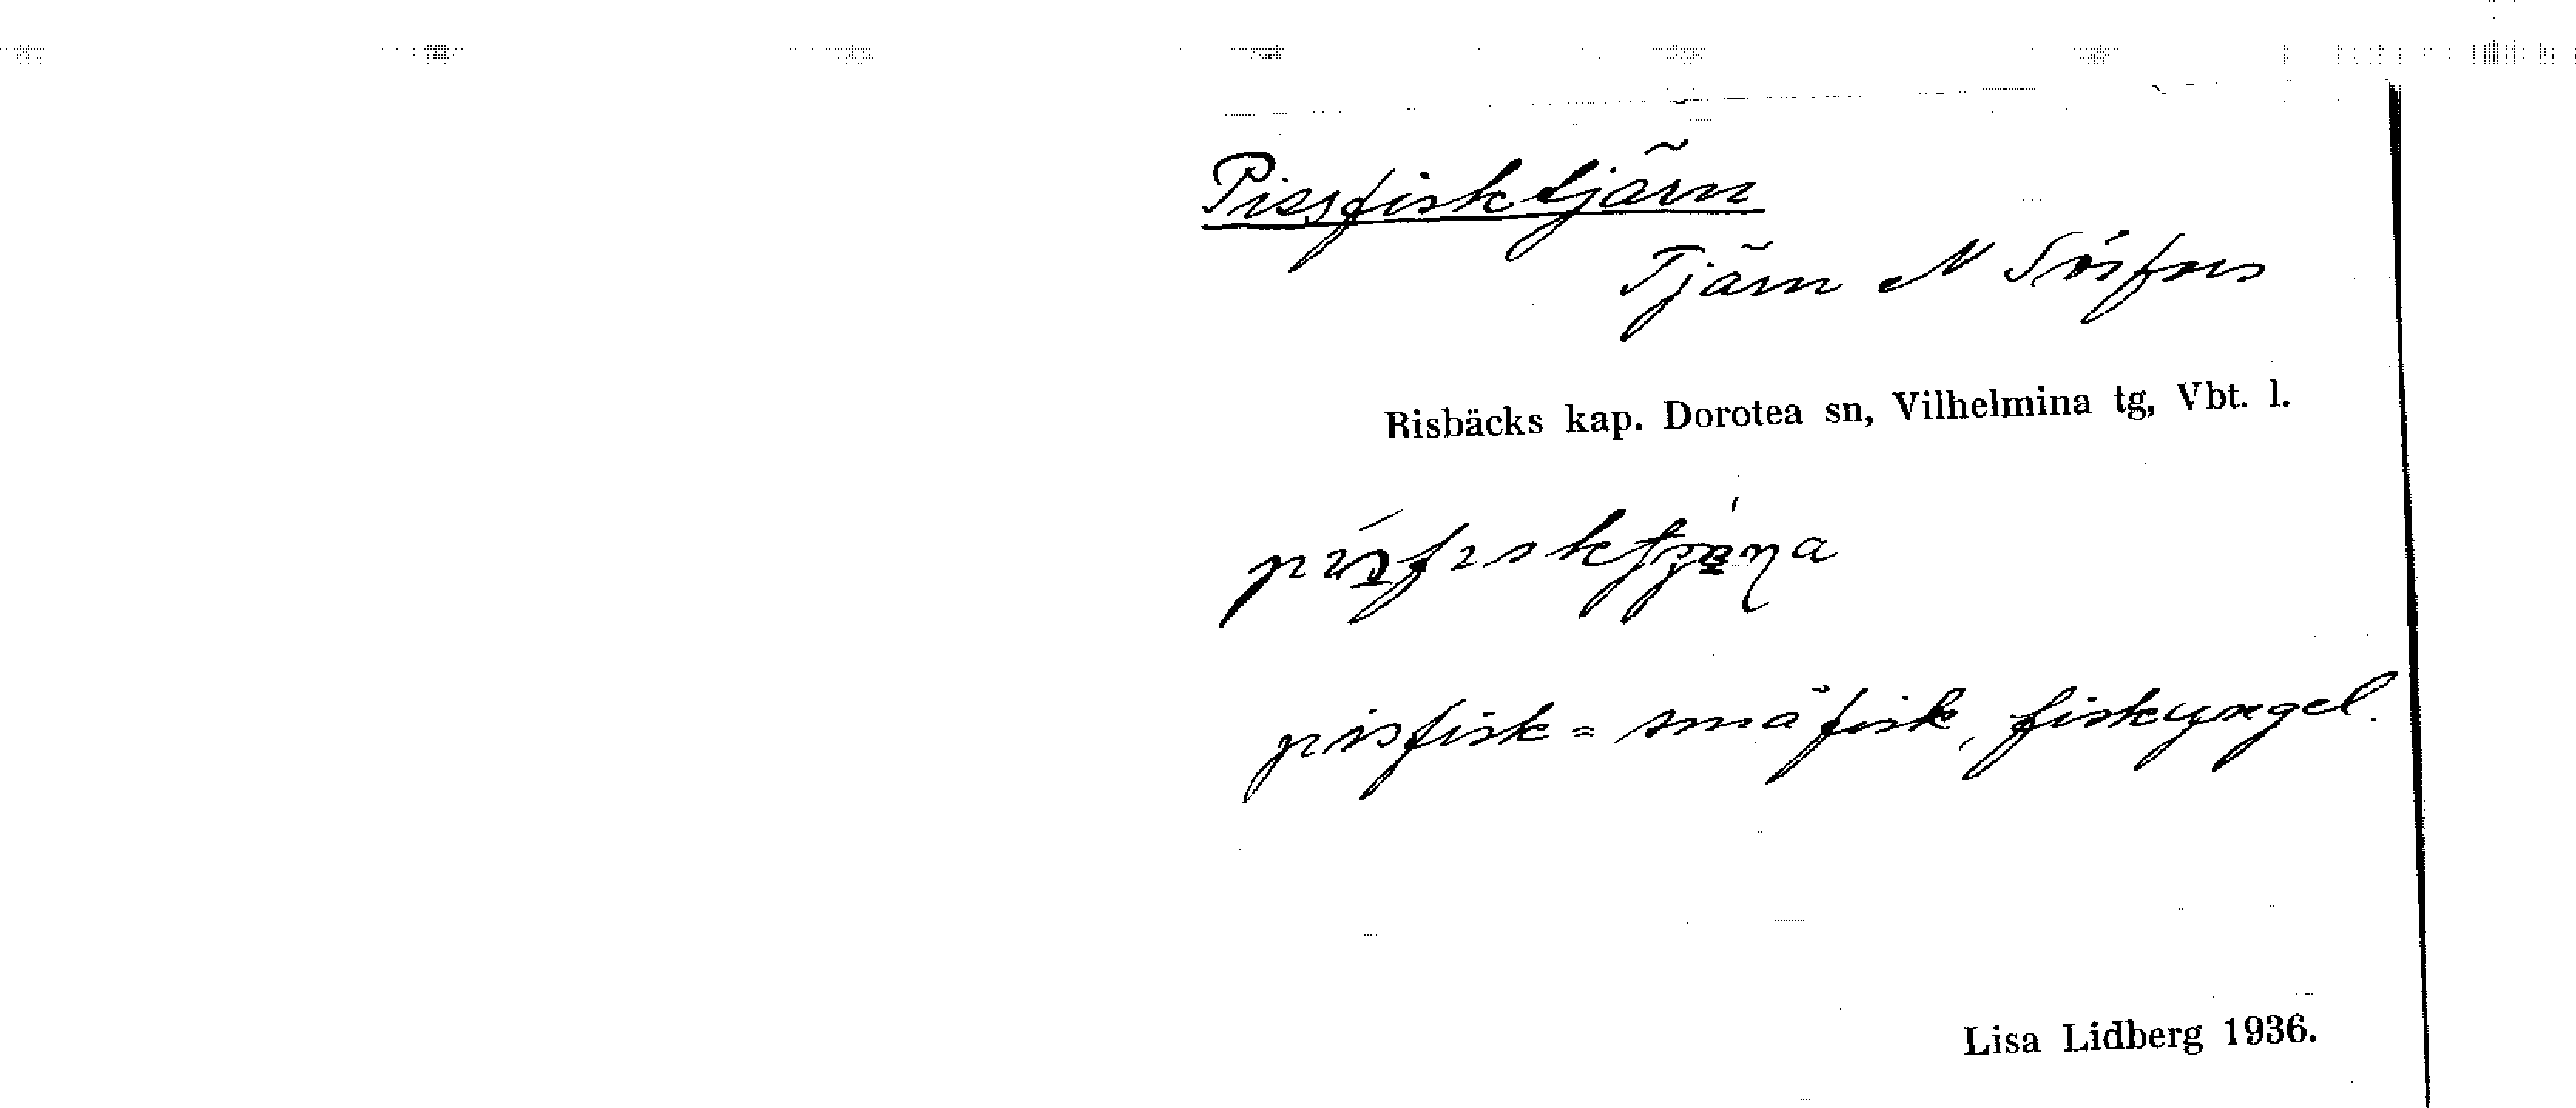 Pissfisktjärn
Tjärn N
Risbäcks kap. Dorotea sn, Vilhelmina tg, Vbt. l.
pisfisk = småfisk, fiskyngel.
Lisa Lidberg 1936.